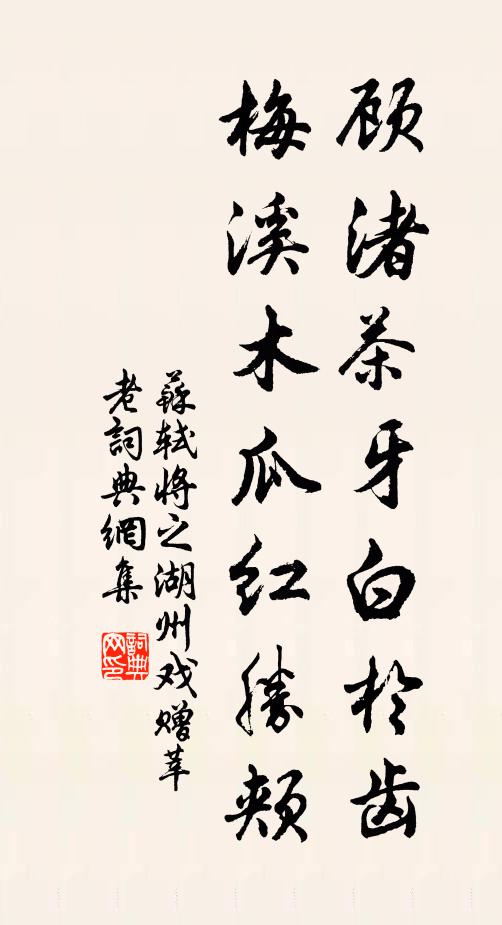 顾渚茶牙白於齿
梅溪木瓜红勝颊
蘇轼将之湖州戏赠莘
老詞典網集
詞典
网印